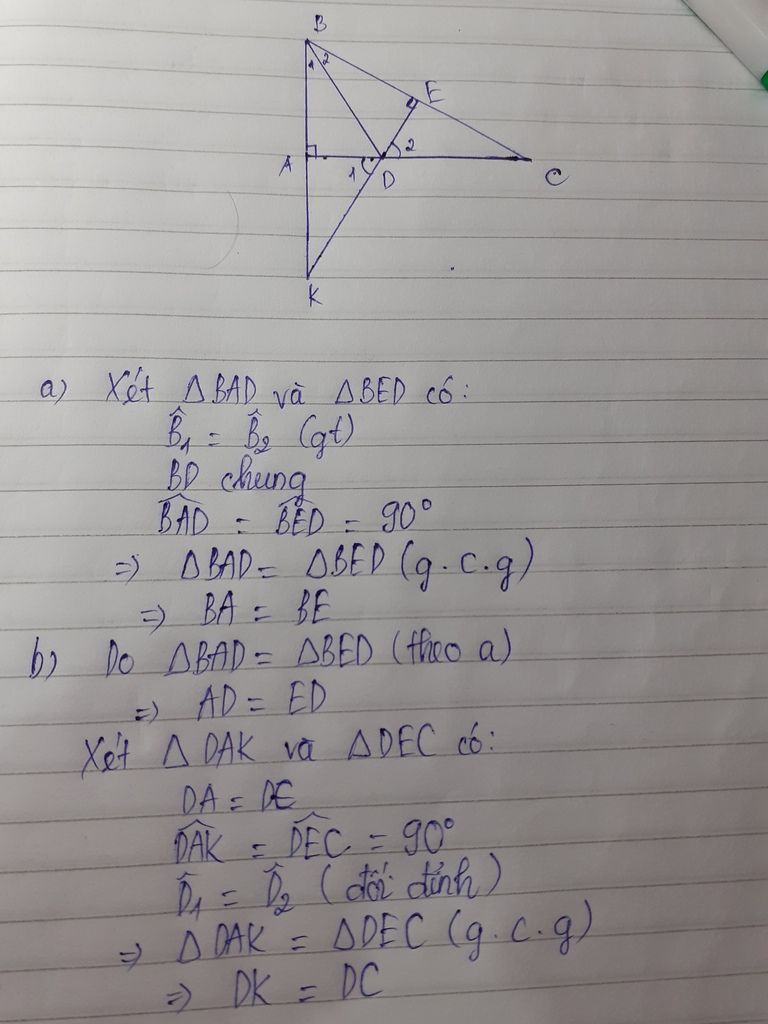 B
1 2
E
A
1
D
2
C
K
a) Xét ΔBAD và ΔBED có:
B̂₁ = B̂₂ (gt)
BD chung
B͡AD = B͡ED = 90°
=> ΔBAD = ΔBED (g.c.g)
=> BA = BE
b) Do ΔBAD = ΔBED (theo a)
=> AD = ED
Xét ΔDAK và ΔDEC có:
DA = DE
D͡AK = D͡EC = 90°
D̂₁ = D̂₂ (đối đỉnh)
=> ΔDAK = ΔDEC (g.c.g)
=> DK = DC